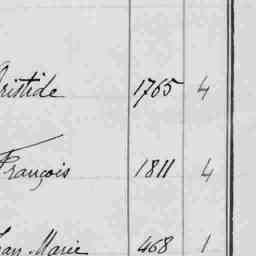 Aristide 1765 4
François 1811 4
Jean Marie 468 1